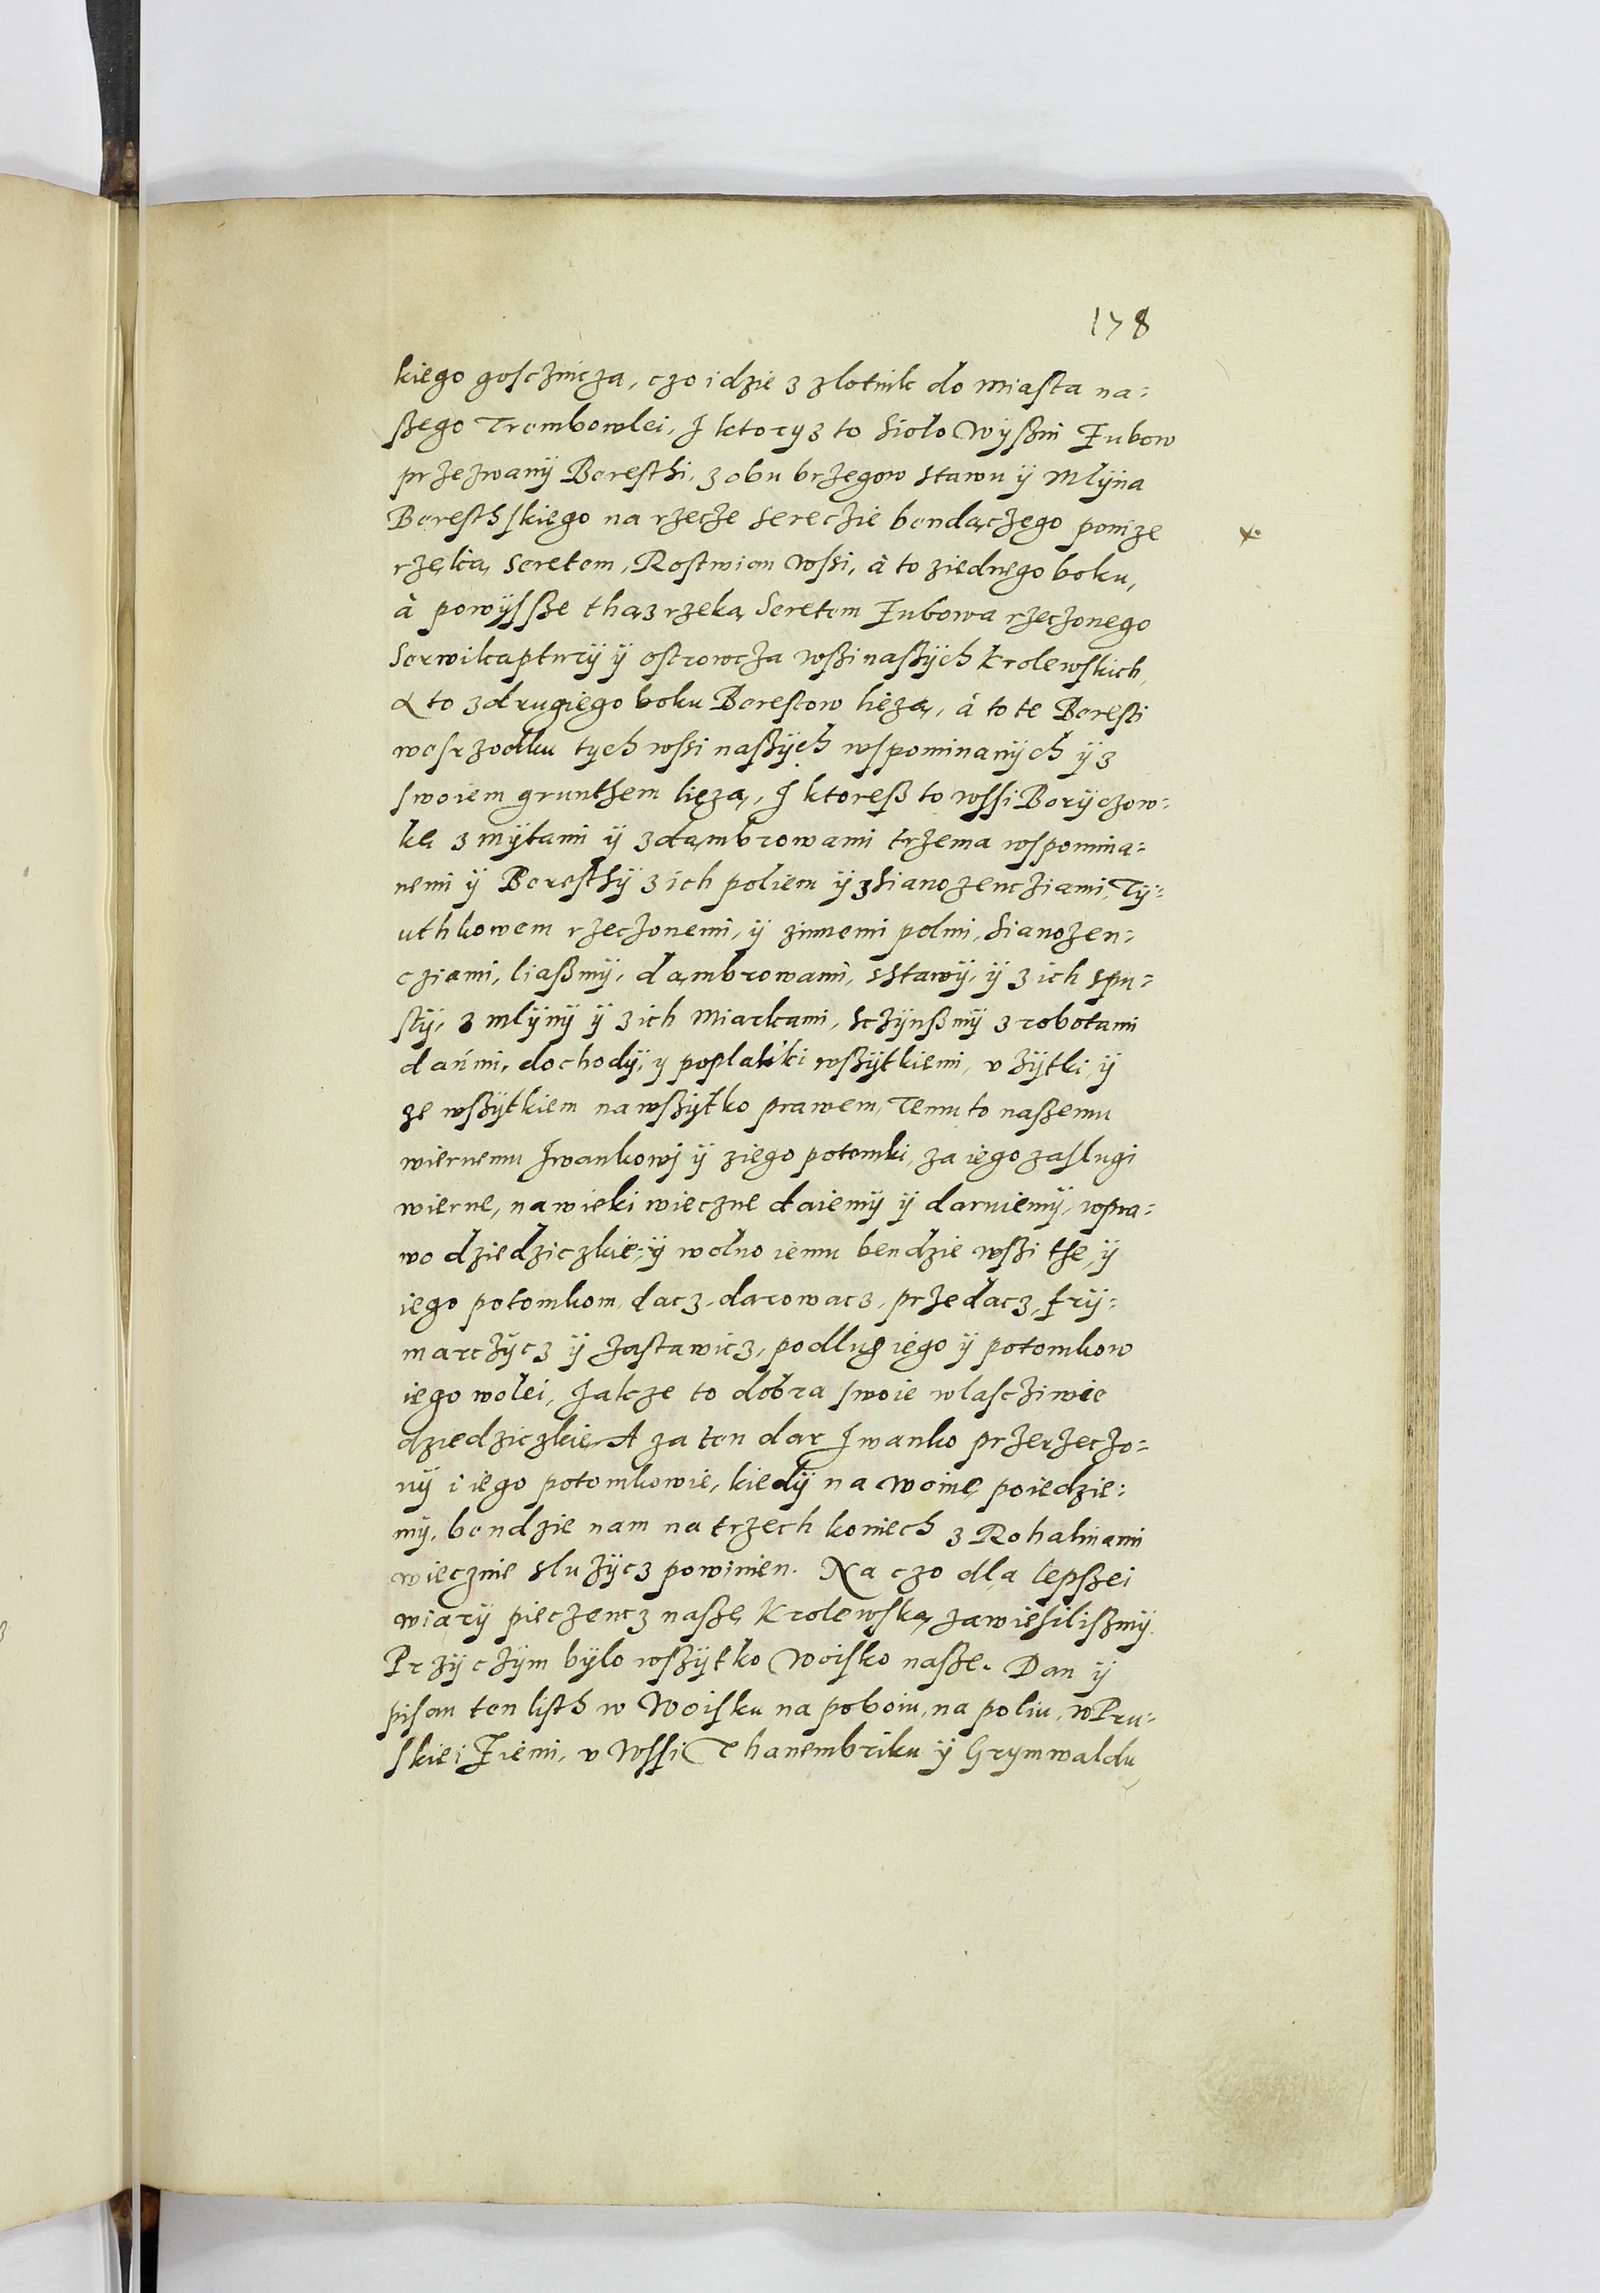 178
kiego goscznicza, czo idzie z zlotnik do Miasta na=
szego Trembowlei, I ktorysz to Siolo Wyszni Zubow
przezwany Beresthi, z obu brzegow stawu ÿ Mlÿna
Beresthskiego na rzecze Sereczie bendączego ponize
rzeką Seretem, Rostwian wssi, à to ziednego boku,
à powÿssze thąz rzeką Seretem Zubowa rzeczonego
Serwikapturÿ ÿ ostrowcza wssi naszÿch Krolewskich,
A to z drugiego boku Berestow lieżą, à to te Beresti
wosrzodku tych wssi naszÿch wspominanÿch ÿ z
swoiem grunthem lieżą, I ktoresz to wssi Borÿczow=
ke z mÿtami ÿ z dąmbrowami trzema wspomina=
nemi ÿ Beresthÿ z ich poliem ÿ z Sianozencziami, Tÿ=
uthkowem rzeczonemi, ÿ zinnemi polmi, Sianozen=
cziami, liaszmÿ, dąmbrowami, sstawÿ, ÿ z ich spu=
stÿ, z mlÿnÿ ÿ z ich Miarkami, Sczÿnszmÿ z robotami
dańmi, dochodÿ, y poplatki wszÿtkiemi, v zÿtki ÿ
ze wszÿtkiem na wszÿtko prawem, Temu to naszemu
wiernemu Iwankowj ÿ ziego potomki, za iego zaslugi
wierne, na wieki wieczne daiemÿ ÿ daruiemÿ, wpra=
wo dziedziczkie, ÿ wolno iemu bendzie wssi the, ÿ
iego potomkom dacz, darowacz, przedacz, frÿ=
marczÿcz ÿ Zastawicz, podlug iego ÿ potomkow
iego wolei, Jakze to dobra swoie wlascziwie
dziedziczkie, A za ten dar Iwanko przerzeczo=
nÿ i iego potomkowie, kiedÿ na woinę poiedzie=
mÿ, bendzie nam na trzech koniech z Rohatinami
wiecznie sluzÿcz powinien. Na czo dla lepszei
wiarÿ pieczencz naszę Krolewską zawiesiliszmÿ.
Przÿ czÿm bÿlo wszÿtko Woisko nasze. Dan ÿ
pisan ten listh w Woisku na poboiu, na poliu, w Pru=
skiei Ziemi, v Wssi Thanembriku ÿ Grymwaldu,